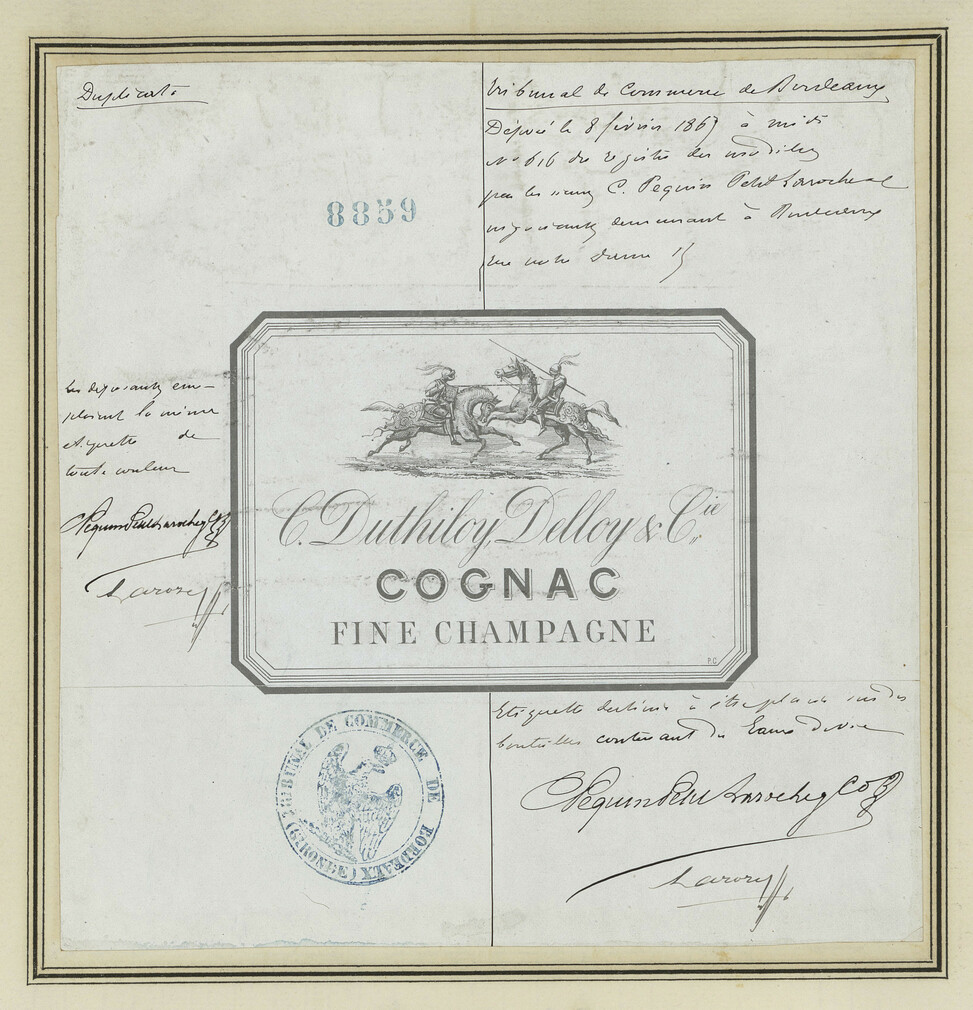 Duplicata
8859
Tribunal de Commerce de Bordeaux
Déposé le 8 février 1867 à midi
No 616 du registre des modèles
par les sieurs C. Pequin Petit Laroche &
négociants demeurant à Bordeaux
rue notre dame
Les déposants em-
ploient la même
etiquette de
toute couleur
C Pequin Petit Laroche & Co
C. Duthiloy, Delloy & Cie
COGNAC
FINE CHAMPAGNE
P.C.
TRIBUNAL DE COMMERCE DE BORDEAUX (GIRONDE)
Etiquette destinée à être placée sur des
bouteilles contenant des Eaux de vie
C Pequin Petit Laroche & Co